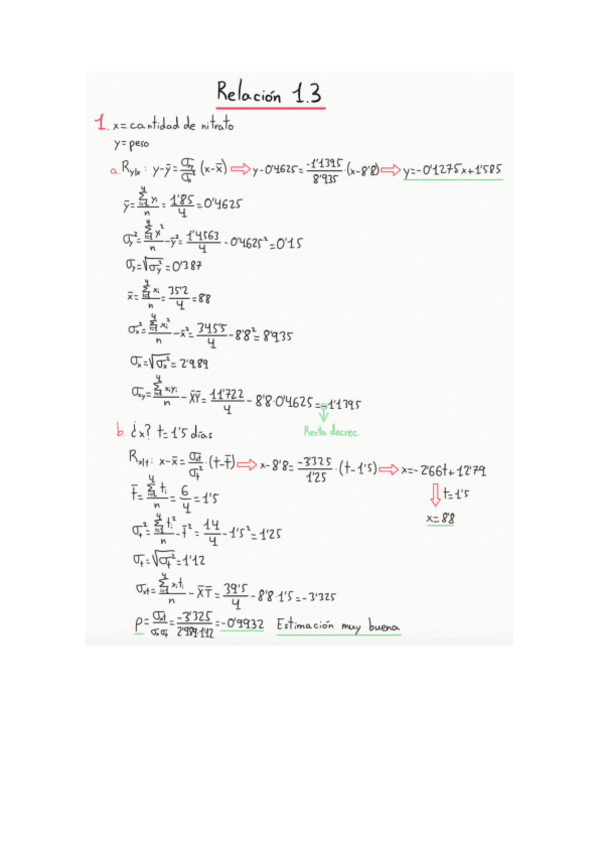 Relación 1.3
1. x = cantidad de nitrato
y = peso
a. R_{y|x}: y-ȳ = σ_{xy}/σ_x² (x-x̄) ⇒ y-0'4625 = -1'1395/8'935 · (x-8'8) ⇒ y = -0'1275x+1'585
ȳ = Σ_{i=1}^{4} y_i / n = 1'85/4 = 0'4625
σ_y² = Σ_{i=1}^{4} y_i² / n - ȳ² = 1'4563/4 - 0'4625² = 0'15
σ_y = √σ_y² = 0'387
x̄ = Σ_{i=1}^{4} x_i / n = 35'2/4 = 8'8
σ_x² = Σ_{i=1}^{4} x_i² / n - x̄² = 345'5/4 - 8'8² = 8'935
σ_x = √σ_x² = 2'989
σ_{xy} = Σ_{i=1}^{4} x_i y_i / n - X̄Ȳ = 11'722/4 - 8'8·0'4625 = -1'1395
Recta decrec.
b. ¿x? t = 1'5 días
R_{x|t}: x-x̄ = σ_{xt}/σ_t² · (t-t̄) ⇒ x-8'8 = -3'325/1'25 · (t-1'5) ⇒ x = -2'66t+12'79
t̄ = Σ_{i=1}^{4} t_i / n = 6/4 = 1'5
t = 1'5
σ_t² = Σ_{i=1}^{4} t_i² / n - t̄² = 14/4 - 1'5² = 1'25
x = 8'8
σ_t = √σ_t² = 1'12
σ_{xt} = Σ_{i=1}^{4} x_i t_i / n - X̄T̄ = 39'5/4 - 8'8·1'5 = -3'325
ρ = σ_{xt}/σ_x σ_t = -3'325/2'989·1'12 = -0'9932 Estimación muy buena